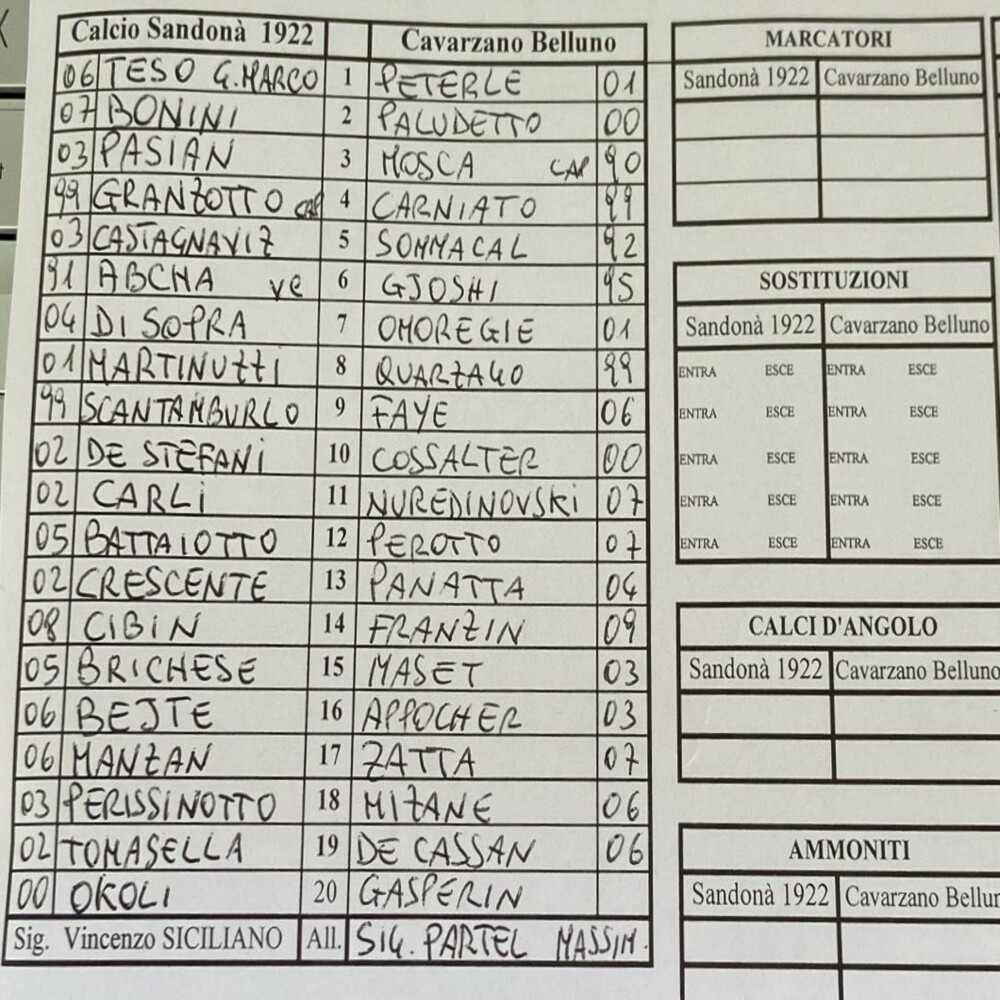 Calcio Sandonà 1922 Cavarzano Belluno
06 TESO G.MARCO 1 PETERLE 01
07 BONINI 2 PALUDETTO 00
03 PASIAN 3 MOSCA CAP 90
99 GRANZOTTO CAP 4 CARNIATO 99
03 CASTAGNAVIZ 5 SOMMACAL 92
91 ABCHA VC 6 GJOSHI 95
04 DI SOPRA 7 OMOREGIE 01
01 MARTINUZZI 8 QUARZAGO 99
99 SCANTAMBURLO 9 FAYE 06
02 DE STEFANI 10 COSSALTER 00
02 CARLI 11 NUREDINOVSKI 07
05 BATTAIOTTO 12 PEROTTO 07
02 CRESCENTE 13 PANATTA 04
08 CIBIN 14 FRANZIN 09
05 BRICHESE 15 MASET 03
06 BEJTE 16 APPOCHER 03
06 MANZAN 17 ZATTA 07
03 PERISSINOTTO 18 MIZANE 06
02 TOMASELLA 19 DE CASSAN 06
00 OKOLI 20 GASPERIN
Sig. Vincenzo SICILIANO All. SIG. PARTEL MASSIM.
MARCATORI
Sandonà 1922 Cavarzano Belluno
SOSTITUZIONI
Sandonà 1922 Cavarzano Belluno
ENTRA ESCE ENTRA ESCE
ENTRA ESCE ENTRA ESCE
ENTRA ESCE ENTRA ESCE
ENTRA ESCE ENTRA ESCE
ENTRA ESCE ENTRA ESCE
CALCI D'ANGOLO
Sandonà 1922 Cavarzano Belluno
AMMONITI
Sandonà 1922 Cavarzano Bellun